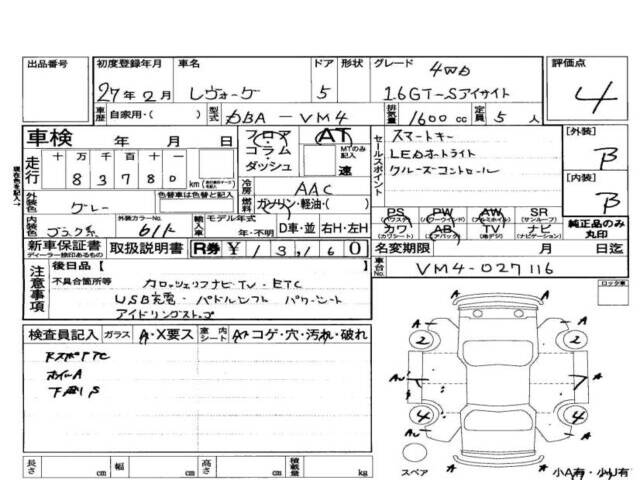 出品番号 初度登録年月 車名 ドア 形状 グレード 評価点
27年 2月 レヴォーグ 5 4WD 1.6GT-Sアイサイト 4
車歴 自家用・( ) 型式 DBA-VM4 排気量 1600 cc 定員 5 人
車検 年 月 日 フロア コラム ダッシュ AT MTのみ記入 速
走行 十万 万 千 百 十 一
8 3 7 8 0 km
セールスポイント スマートキー
LEDオートライト
クルーズコントロール
[外装] B
[内装] B
外装色 グレー 色替車は色替と記入 冷房 AAC
燃料 ガソリン・軽油・( )
内装色 ブラック系 外装カラーNo. 61K 輸入車 モデル年式 年・不明 D車・並 右H・左H
PS (パワステ) PW (パワーウインド) AW (アルミホイル) SR (サンルーフ)
カワ (カワシート) AB (エアバック) TV (地デジ) ナビ (ナビゲーション)
純正品のみ丸印
新車保証書 ディーラー捺印あるもの 取扱説明書 R券 ¥ 名変期限 月 日迄
車台No. VM4-027116
注意事項 後日品 【 】
不具合箇所等 カロッツェリアナビ・TV・ETC
USB充電・パドルシフト パワーシート
アイドリングストップ
ロック車
検査員記入 ガラス A・X要ス 室内シート A コゲ・穴・汚れ・破れ
下廻りS
2 2
A A
4 4
A A
スペア 小A有・小U有
長さ cm 幅 cm 高さ cm 積載量 kg
現色名を記入→